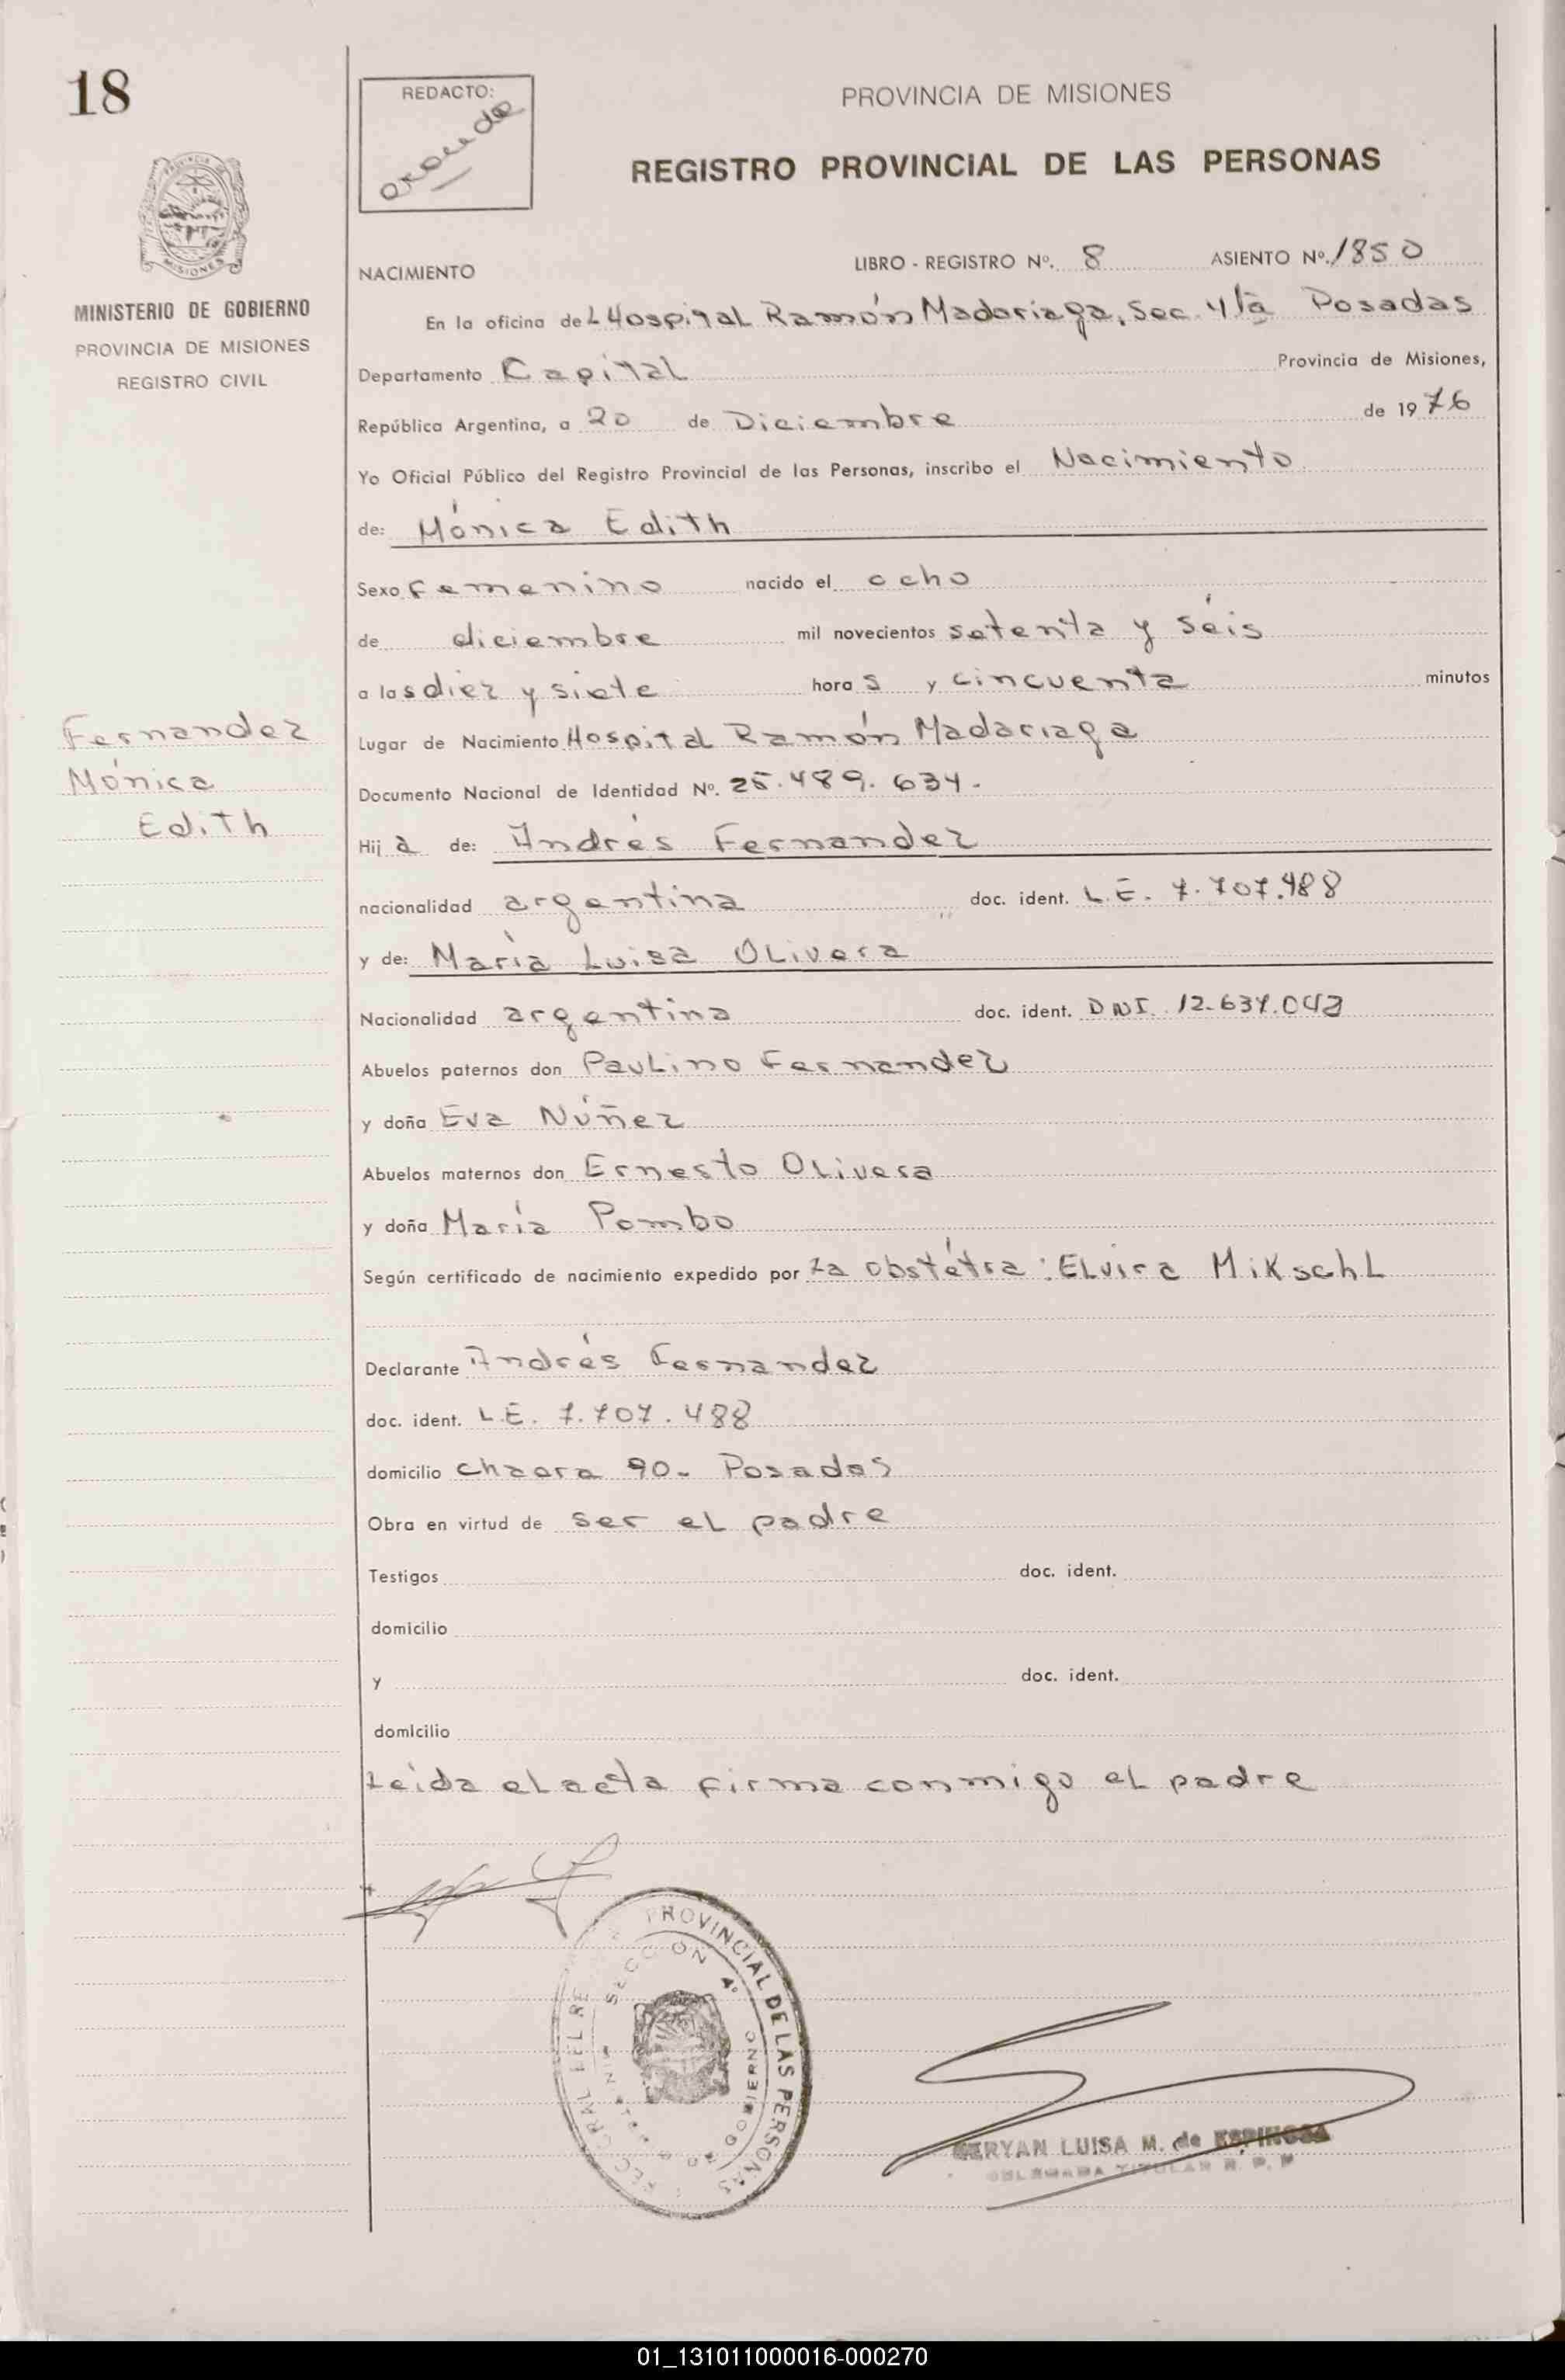 18
REDACTO:
PROVINCIA DE MISIONES
REGISTRO PROVINCIAL DE LAS PERSONAS
MISIONES
MINISTERIO DE GOBIERNO
PROVINCIA DE MISIONES
REGISTRO CIVIL
NACIMIENTO
LIBRO - REGISTRO Nº. 8 ASIENTO Nº. 1850
En la oficina del Hospital Ramón Madariaga, Sec. 4ta Posadas
Departamento Capital Provincia de Misiones,
República Argentina, a 20 de Diciembre de 1976
Yo Oficial Público del Registro Provincial de las Personas, inscribo el Nacimiento
de: Mónica Edith
Sexo femenino nacido el ocho
de diciembre mil novecientos setenta y séis
a las diez y siete horas y cincuenta minutos
Lugar de Nacimiento Hospital Ramón Madariaga
Documento Nacional de Identidad Nº. 25.489.634.
Hija de: Andrés Fernandez
nacionalidad argentina doc. ident. L.E. 7.707.488
y de: María Luisa Olivera
Nacionalidad argentina doc. ident. DNI. 12.637.042
Abuelos paternos don Paulino Fernandez
y doña Eva Núñez
Abuelos maternos don Ernesto Olivera
y doña María Pombo
Según certificado de nacimiento expedido por la obstétra: Elvira Mikschl
Declarante Andrés Fernandez
doc. ident. L.E. 7.707.488
domicilio chacra 90- Posadas
Obra en virtud de ser el padre
Testigos doc. ident.
domicilio
y doc. ident.
domicilio
Leída el acta firma conmigo el padre
Fernandez
Mónica
Edith
PROVINCIAL DE LAS PERSONAS
SECCION 4º
GOBIERNO
GERYAN LUISA M. de ESPINOSA
TITULAR R. P. P
01_131011000016-000270